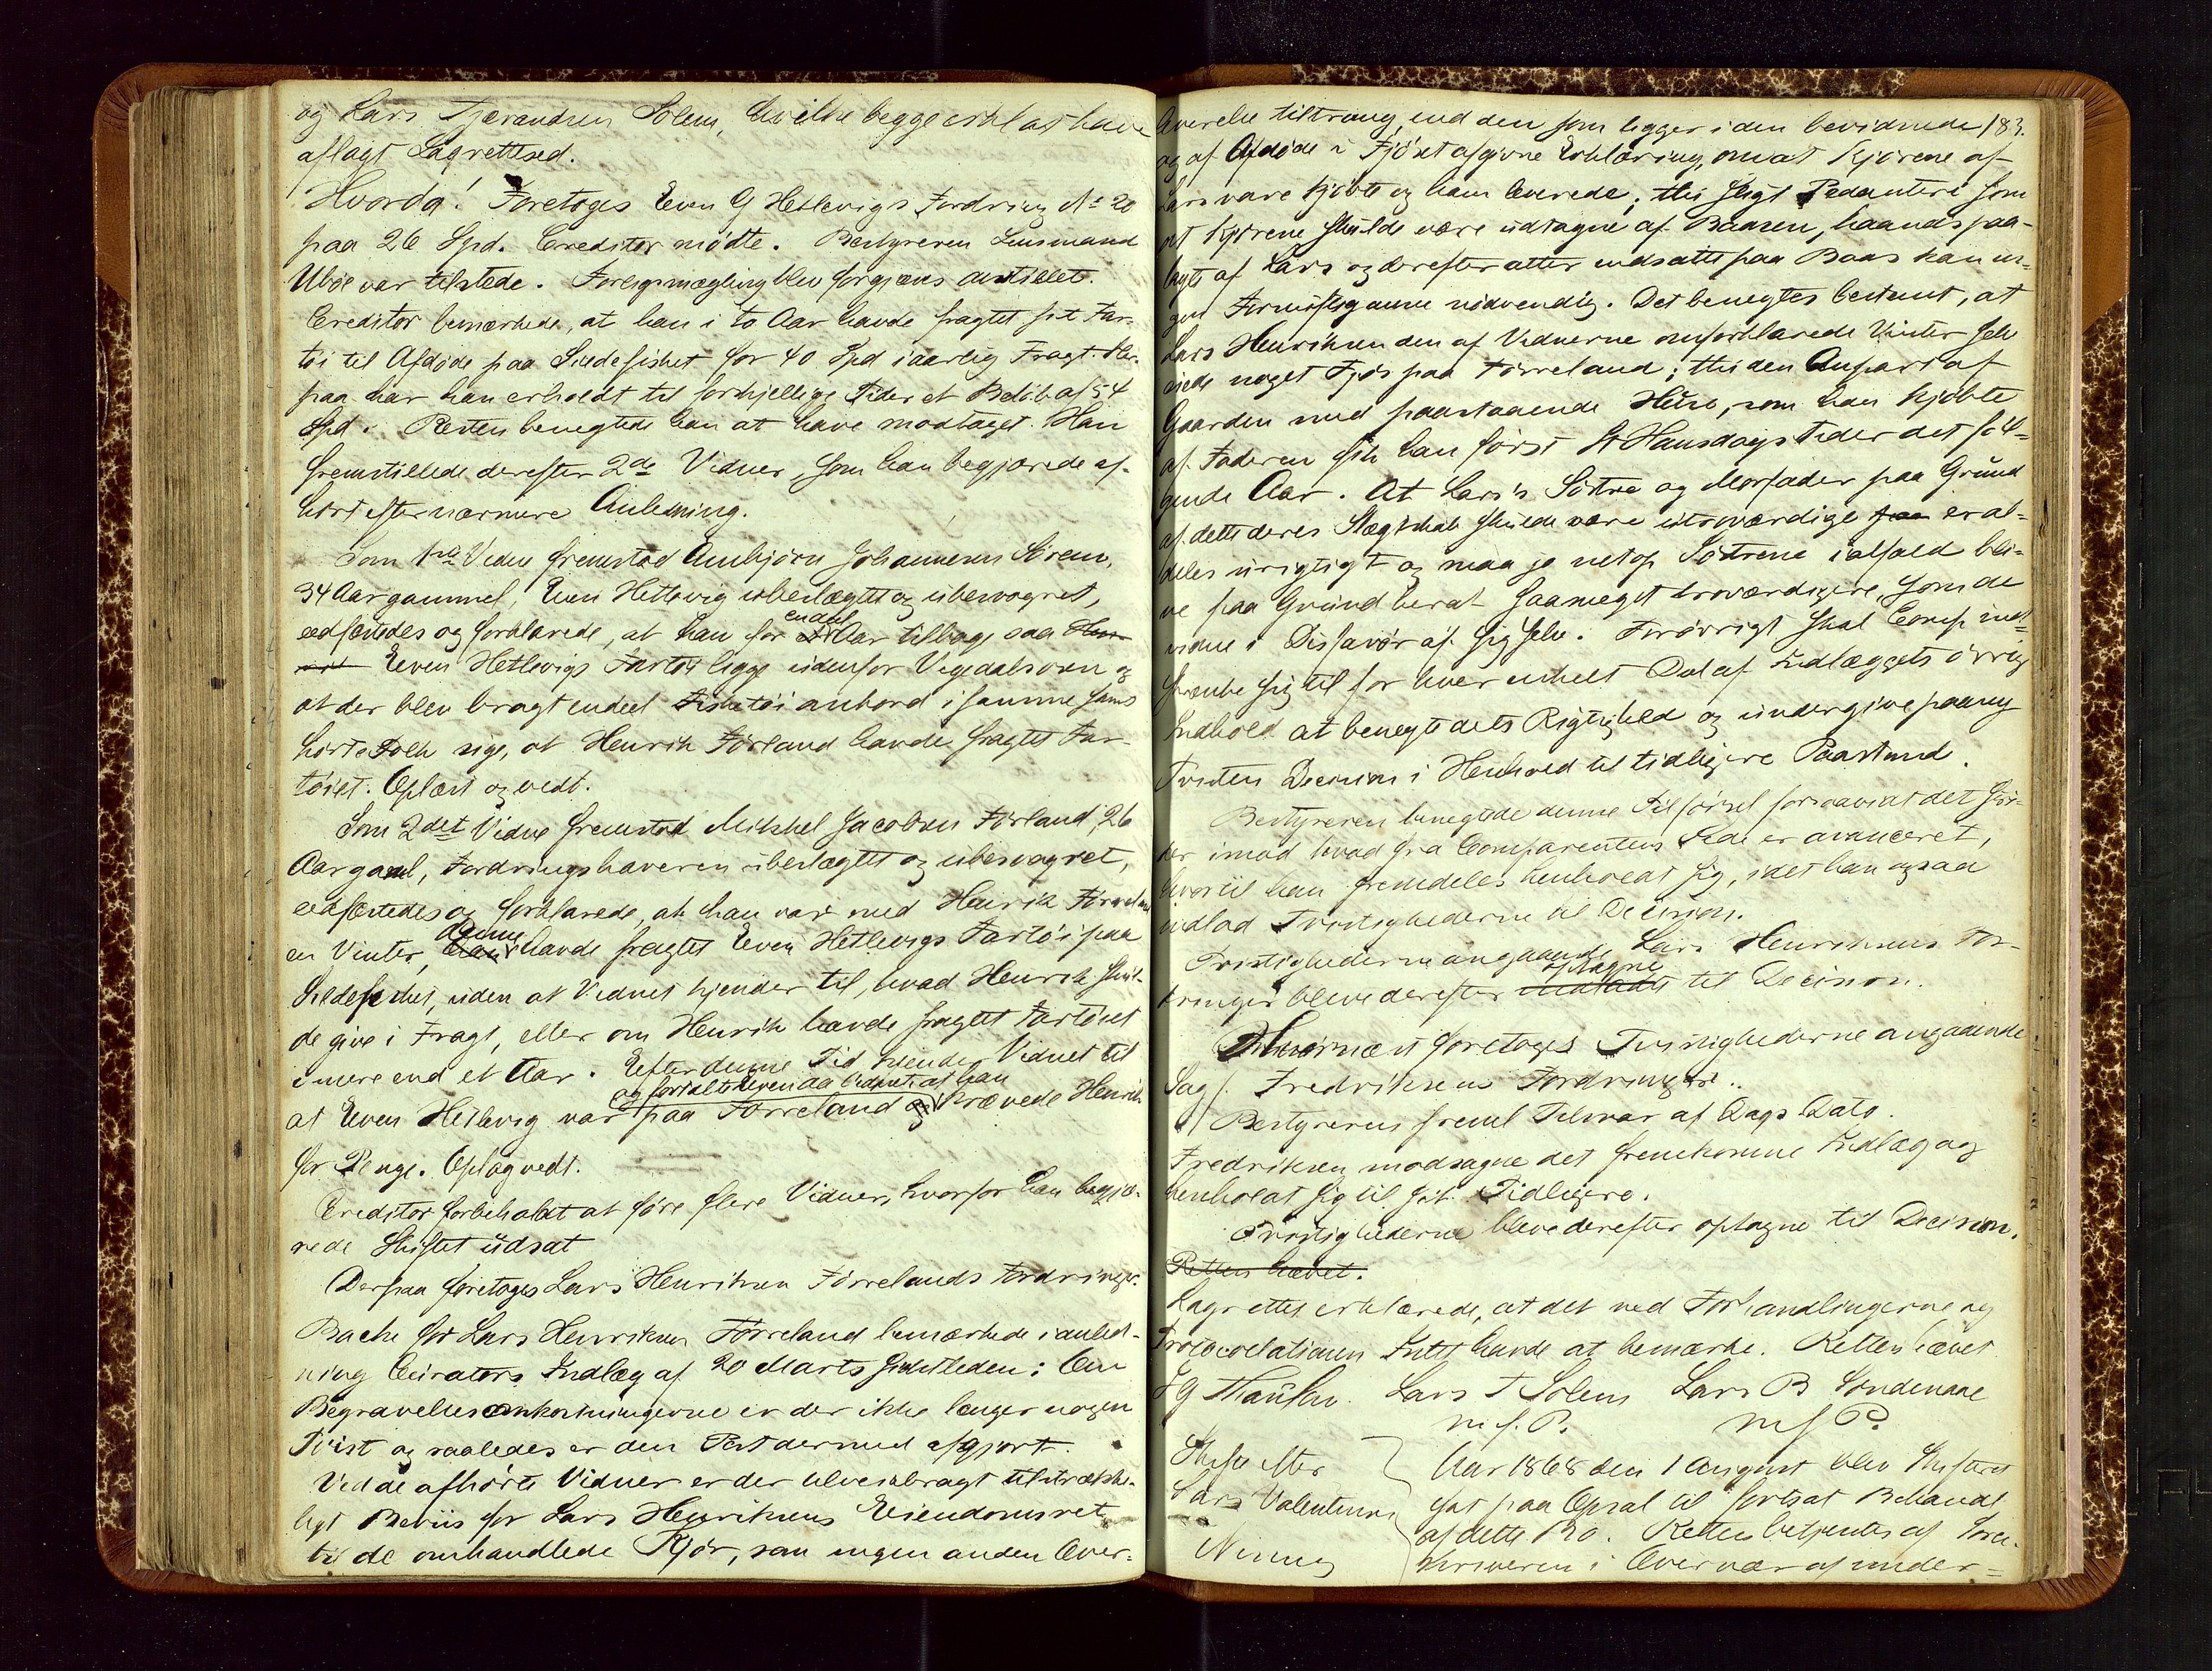 og Lars Tjerandsen Solem, hvilke begge erklæt have
aflagt Lagrettesed.
Hvorda! Foretoges Even G Hetlevigs Fordring No 20
paa 26 Spd. Creditor mødte. Bestyreren Lensmand
Ubøe var tilstede. Forligsmægling blev forgjæves anstillet.
Creditor bemærkede, at han i to Aar havde fragtet sit Far-
tøi til Afdøde paa Sildefisket for 40 Spd i aarlig Fragt. Her-
paa har han erholdt til forskjellige Tider et Beløb af 54
Spd. Resten benegtede han at have modtaget. Han
fremstillede derefter 2de Vidner, som han begjærede af-
hørt efter nærmere Anledning.
Som 1ste Vidne fremstod Anbjørn Johannesen
34 Aar gammel, Even Hetlevig ubeslægtet og ubesvogret,
eedfæstedes og forklarede, at han for endel Aar tilbage saa
Even Hetlevigs Fartøi ligge udenfor og
at der blev bragt endeel Fisketøi ombord i samme samt
hørte Folk sige, at Henrik Førland havde fragtet Far-
tøiet. Oplæst og vedt.
Som 2det Vidne fremstod Mikkel Jacobsen Førland, 26
Aar gaml, Fordringshaveren ubeslægtet og ubesvogret,
eedfæstedes og forklarede, at han var med Henrik Førreland
en Vinter, denne havde fragtet Even Hetlevigs Fartøi paa
Sildefisket, uden at Vidnet kjender til, hvad Henrik skul-
de give i Fragt, eller om Henrik havde fragtet Fartøiet
i mere end et Aar. Efter denne Tid kjender Vidnet til
og fortalte Even da Vidnet, at han
at Even Hetlevig var paa Førreland og krævede Henrik
for Penge. Opl og vedt.
Creditor forbeholdt at føre flere Vidner, hvorfor han begjæ-
rede Skiftet udsat
Derpaa foretoges Lars Henriksen Førrelands Fordringer.
Bache for Lars Henriksen Førreland bemærkede i anled-
ning Curators Indlæg af 20 Marts sidstleden: Om
Begravelsesomkostningerne er der ikke længer nogen
Tvist og saaledes er den Post dermed afgjort.
Ved de afhørte Vidner er der tilveiebragt tilstrække-
ligt Beviis for Lars Henriksens Eiendomsret
til de omhandlede Kjør, som ingen anden Over-
averelse tiltrang, end den som ligger i den bevidnede 183.
og af Afdøde i Fjøset afgivne Erklæring, om at Kjørene af
Lars vare kjøbte og ham leverede; thi sligt Pedanteri som
at Kjørene skulde være udtagne af Baasen, haandspaa-
lagt af Lars og derefter atter indsatte paa Baas kan in-
gen Fornuftig anse nødvendig. Det benegtes bestemt, at
Lars Henriksen den af Vidnerne omforklarede Vinter selv
eiede noget Fjøs paa Førreland; thi den Anpart af
Gaarden med paastaaende Huse, som han kjøbte
af Faderen fik han først St Hansdags Tider det føl-
gende Aar. At Lars's Søstre og Morfader paa Grund
af dette deres Slægtskab skulde være utroværdige er al-
deles urigtigt og maa jo netop Søstrene ialfald bli-
ve paa Grund heraf saameget troværdigere, som de
vidne i Disfavør af sig selv. Forøvrigt skal Comp ind-
skrænke sig til for hver enkelt Deel af Indlæggets øvrige
Indhold at benegte dets Rigtighed og undergive paany
Tvisten Decision i Henhold til tidligere Paastand.
Bestyreren benegtede denne Tilførsel forsaavidt det stri-
der imod hvad fra Comparentens Side er avanceret,
hvortil han fremdeles henholdt sig, idet han ogsaa
indlod Tvistighederne til Decision.
Tvistighederne angaaende Lars Henriksens For-
dringer bleve derefter optagne til Decision.
foretoges Tvistighederne angaaende
Sagf. Fredriksens Fordringer.
Bestyreren freml Tilsvar af Dags Dato.
Fredriksen modsagde det fremkomne Indlæg og
henholdt sig til sit Tidligere.
Tvistighederne bleve derefter optagne til Decision.
Retten hævet.
Lagrettet erklærede, at det ved Forhandlingerne og
Protocolationen Intet havde at bemærke. Retten hævet
Lars T Solem Lars B Søndenaae
m.f.P. m f P.
Skifte efter
Lars Valentinus
Aar 1868 den 1 August blev Skifteret
sat paa Opsal til fortsat Behandl
af dette Bo. Retten betjentes af Soren-
skriveren i Overvær af under-